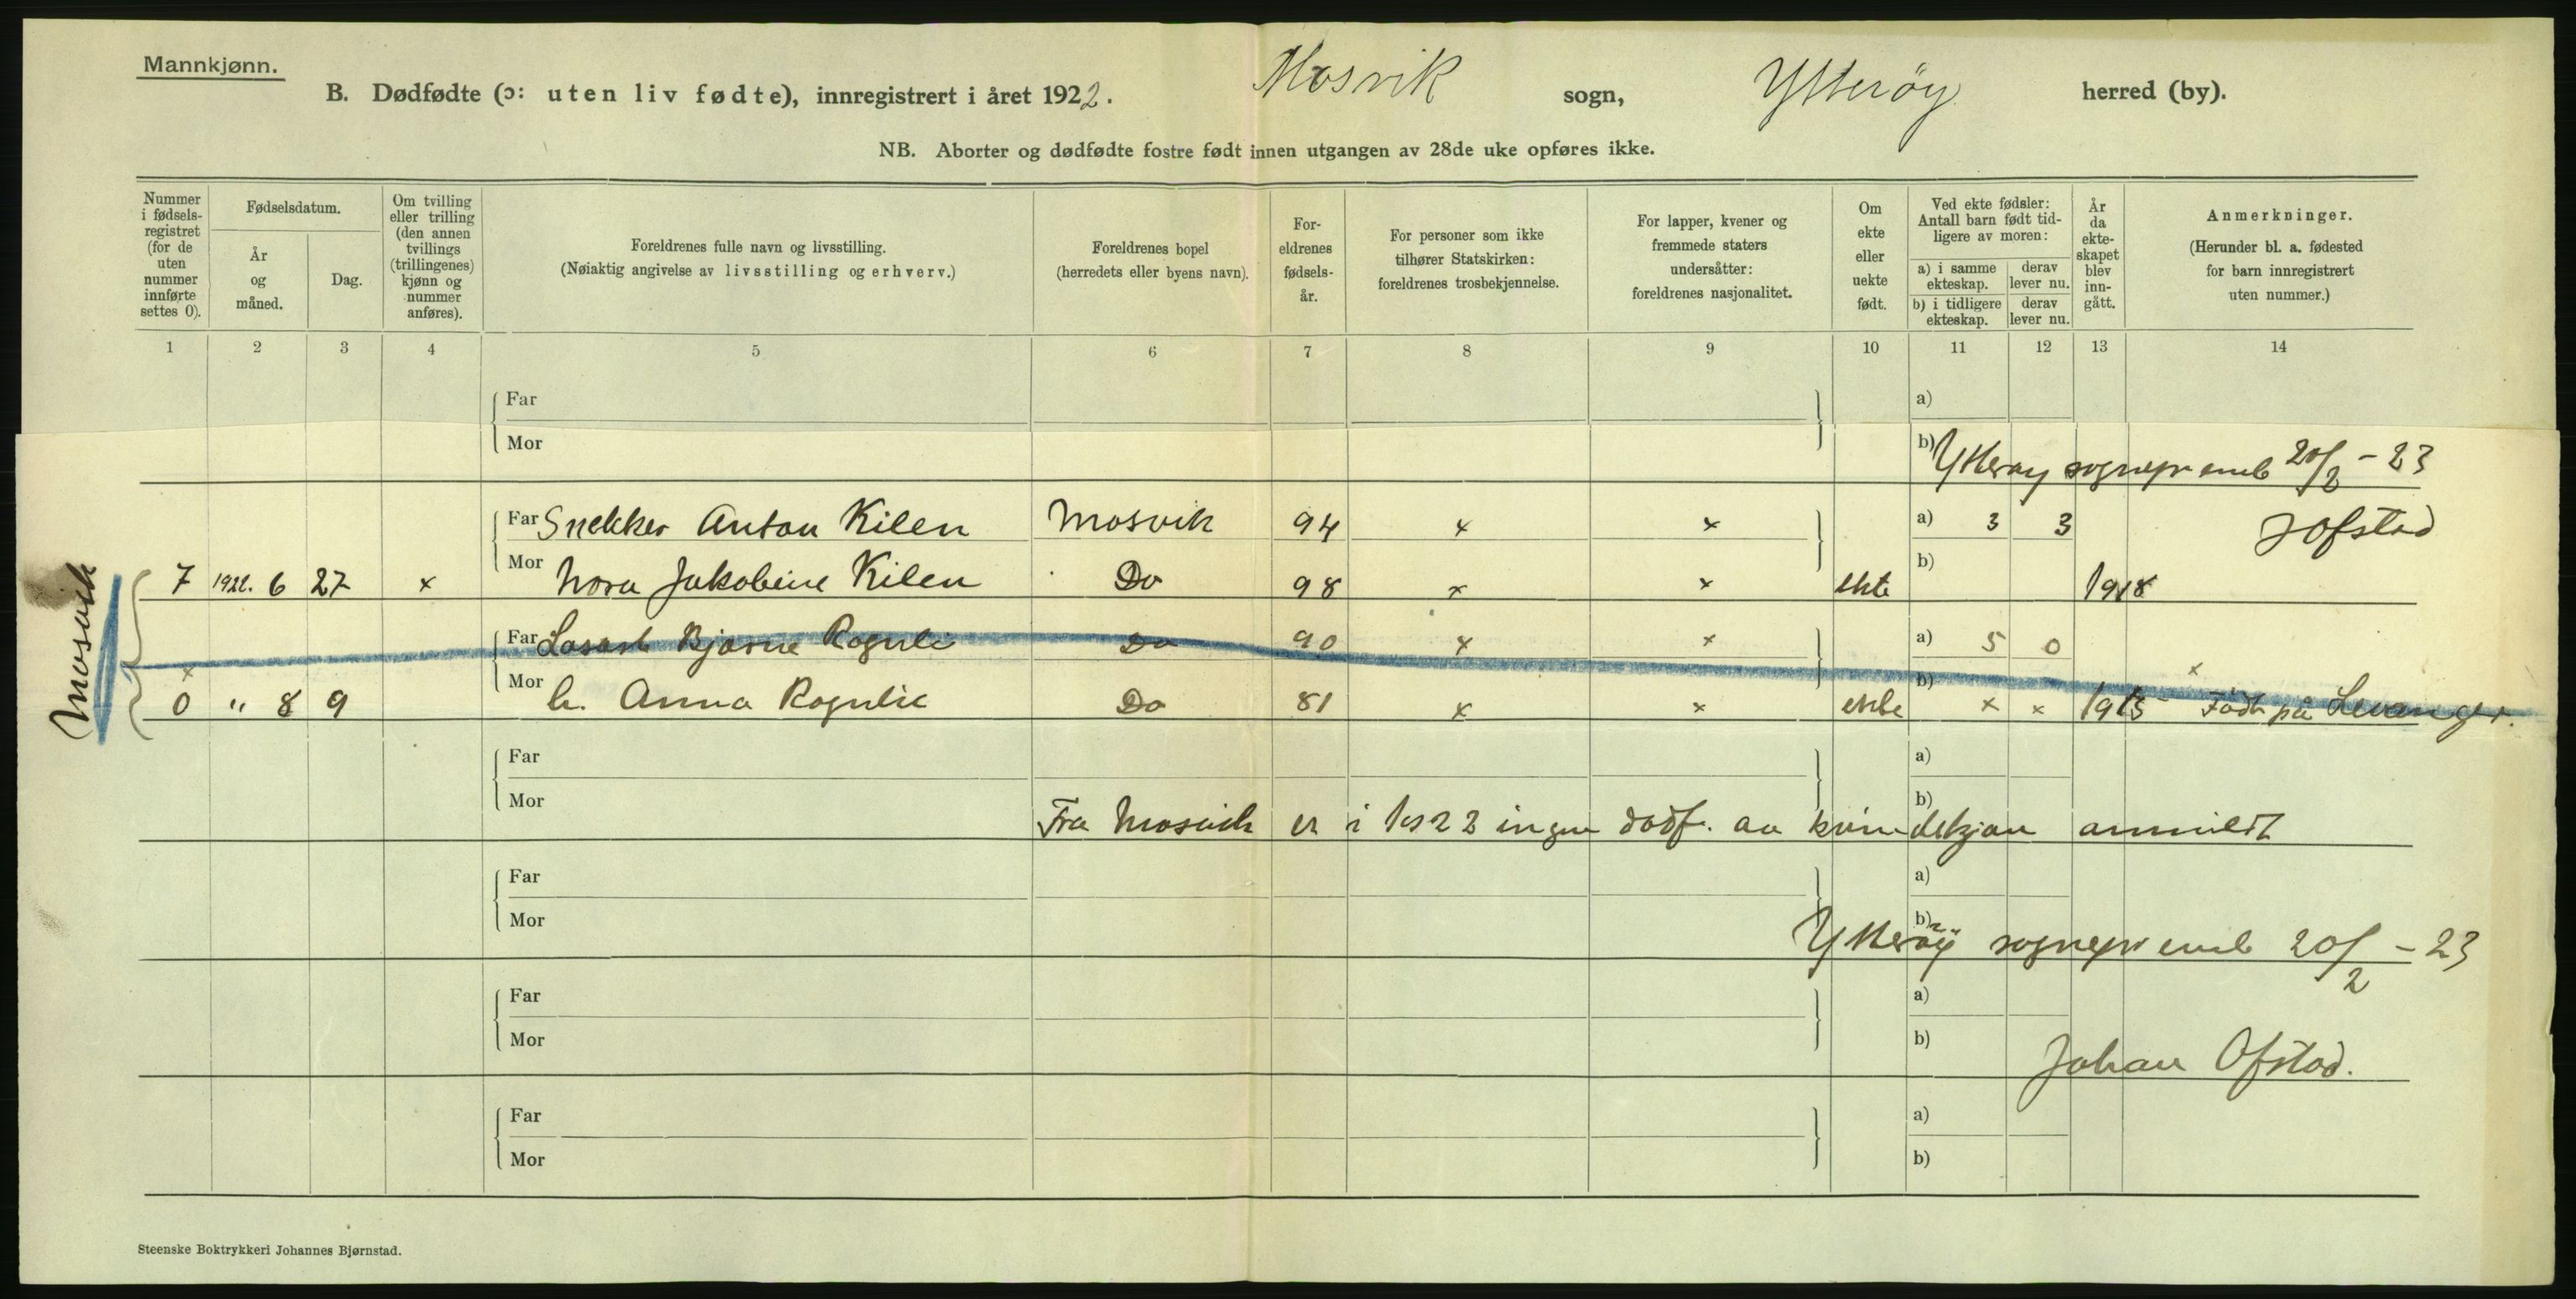 Mannkjønn.
B. Dødfødte (ɔ: uten liv fødte), innregistrert i året 1922. Mosvik sogn, Ytterøy herred (by).
NB. Aborter og dødfødte fostre født innen utgangen av 28de uke opføres ikke.
Nummer i fødsels-registret (for de uten nummer innførte settes 0).
Fødselsdatum.
År og måned.
Dag.
Om tvilling eller trilling (den annen tvillings (trillingenes) kjønn og nummer anføres).
Foreldrenes fulle navn og livsstilling.
(Nøiaktig angivelse av livsstilling og erhverv.)
Foreldrenes bopel
(herredets eller byens navn).
For-eldrenes fødsels-år.
For personer som ikke tilhører Statskirken: foreldrenes trosbekjennelse.
For lapper, kvener og fremmede staters undersåtter: foreldrenes nasjonalitet.
Om ekte eller uekte født.
Ved ekte fødsler: Antall barn født tid-ligere av moren:
a) i samme ekteskap.
derav lever nu.
b) i tidligere ekteskap.
derav lever nu.
År da ekte-skapet blev inn-gått.
Anmerkninger.
(Herunder bl. a. fødested for barn innregistrert uten nummer.)
1 2 3 4 5 6 7 8 9 10 11 12 13 14
Far a)
Mor b)
Ytterøy sognepr emb 20/2 - 23
Far Snekker Anton Kilen Mosvik 94 x x a) 3 3 J Ofstad
7 1922. 6 27 x Mor Nora Jakobine Kilen Do 98 x x ekte b) 1918
Mosvik
Far Bjarne Rognli Do 90 x x a) 5 0
x
0 " 8 9 Mor h. Anna Rognlie Do 81 x x ekte b) x x 1915 x Født på Levanger.
Far a)
Mor b)
Fra Mosvik er i 1922 ingen dødf. av kvindekjøn anmeldt
Far a)
Mor b)
Ytterøy sognepr emb 20/2 - 23
Far a)
Mor b)
Johan Ofstad.
Far a)
Mor b)
Steenske Boktrykkeri Johannes Bjørnstad.